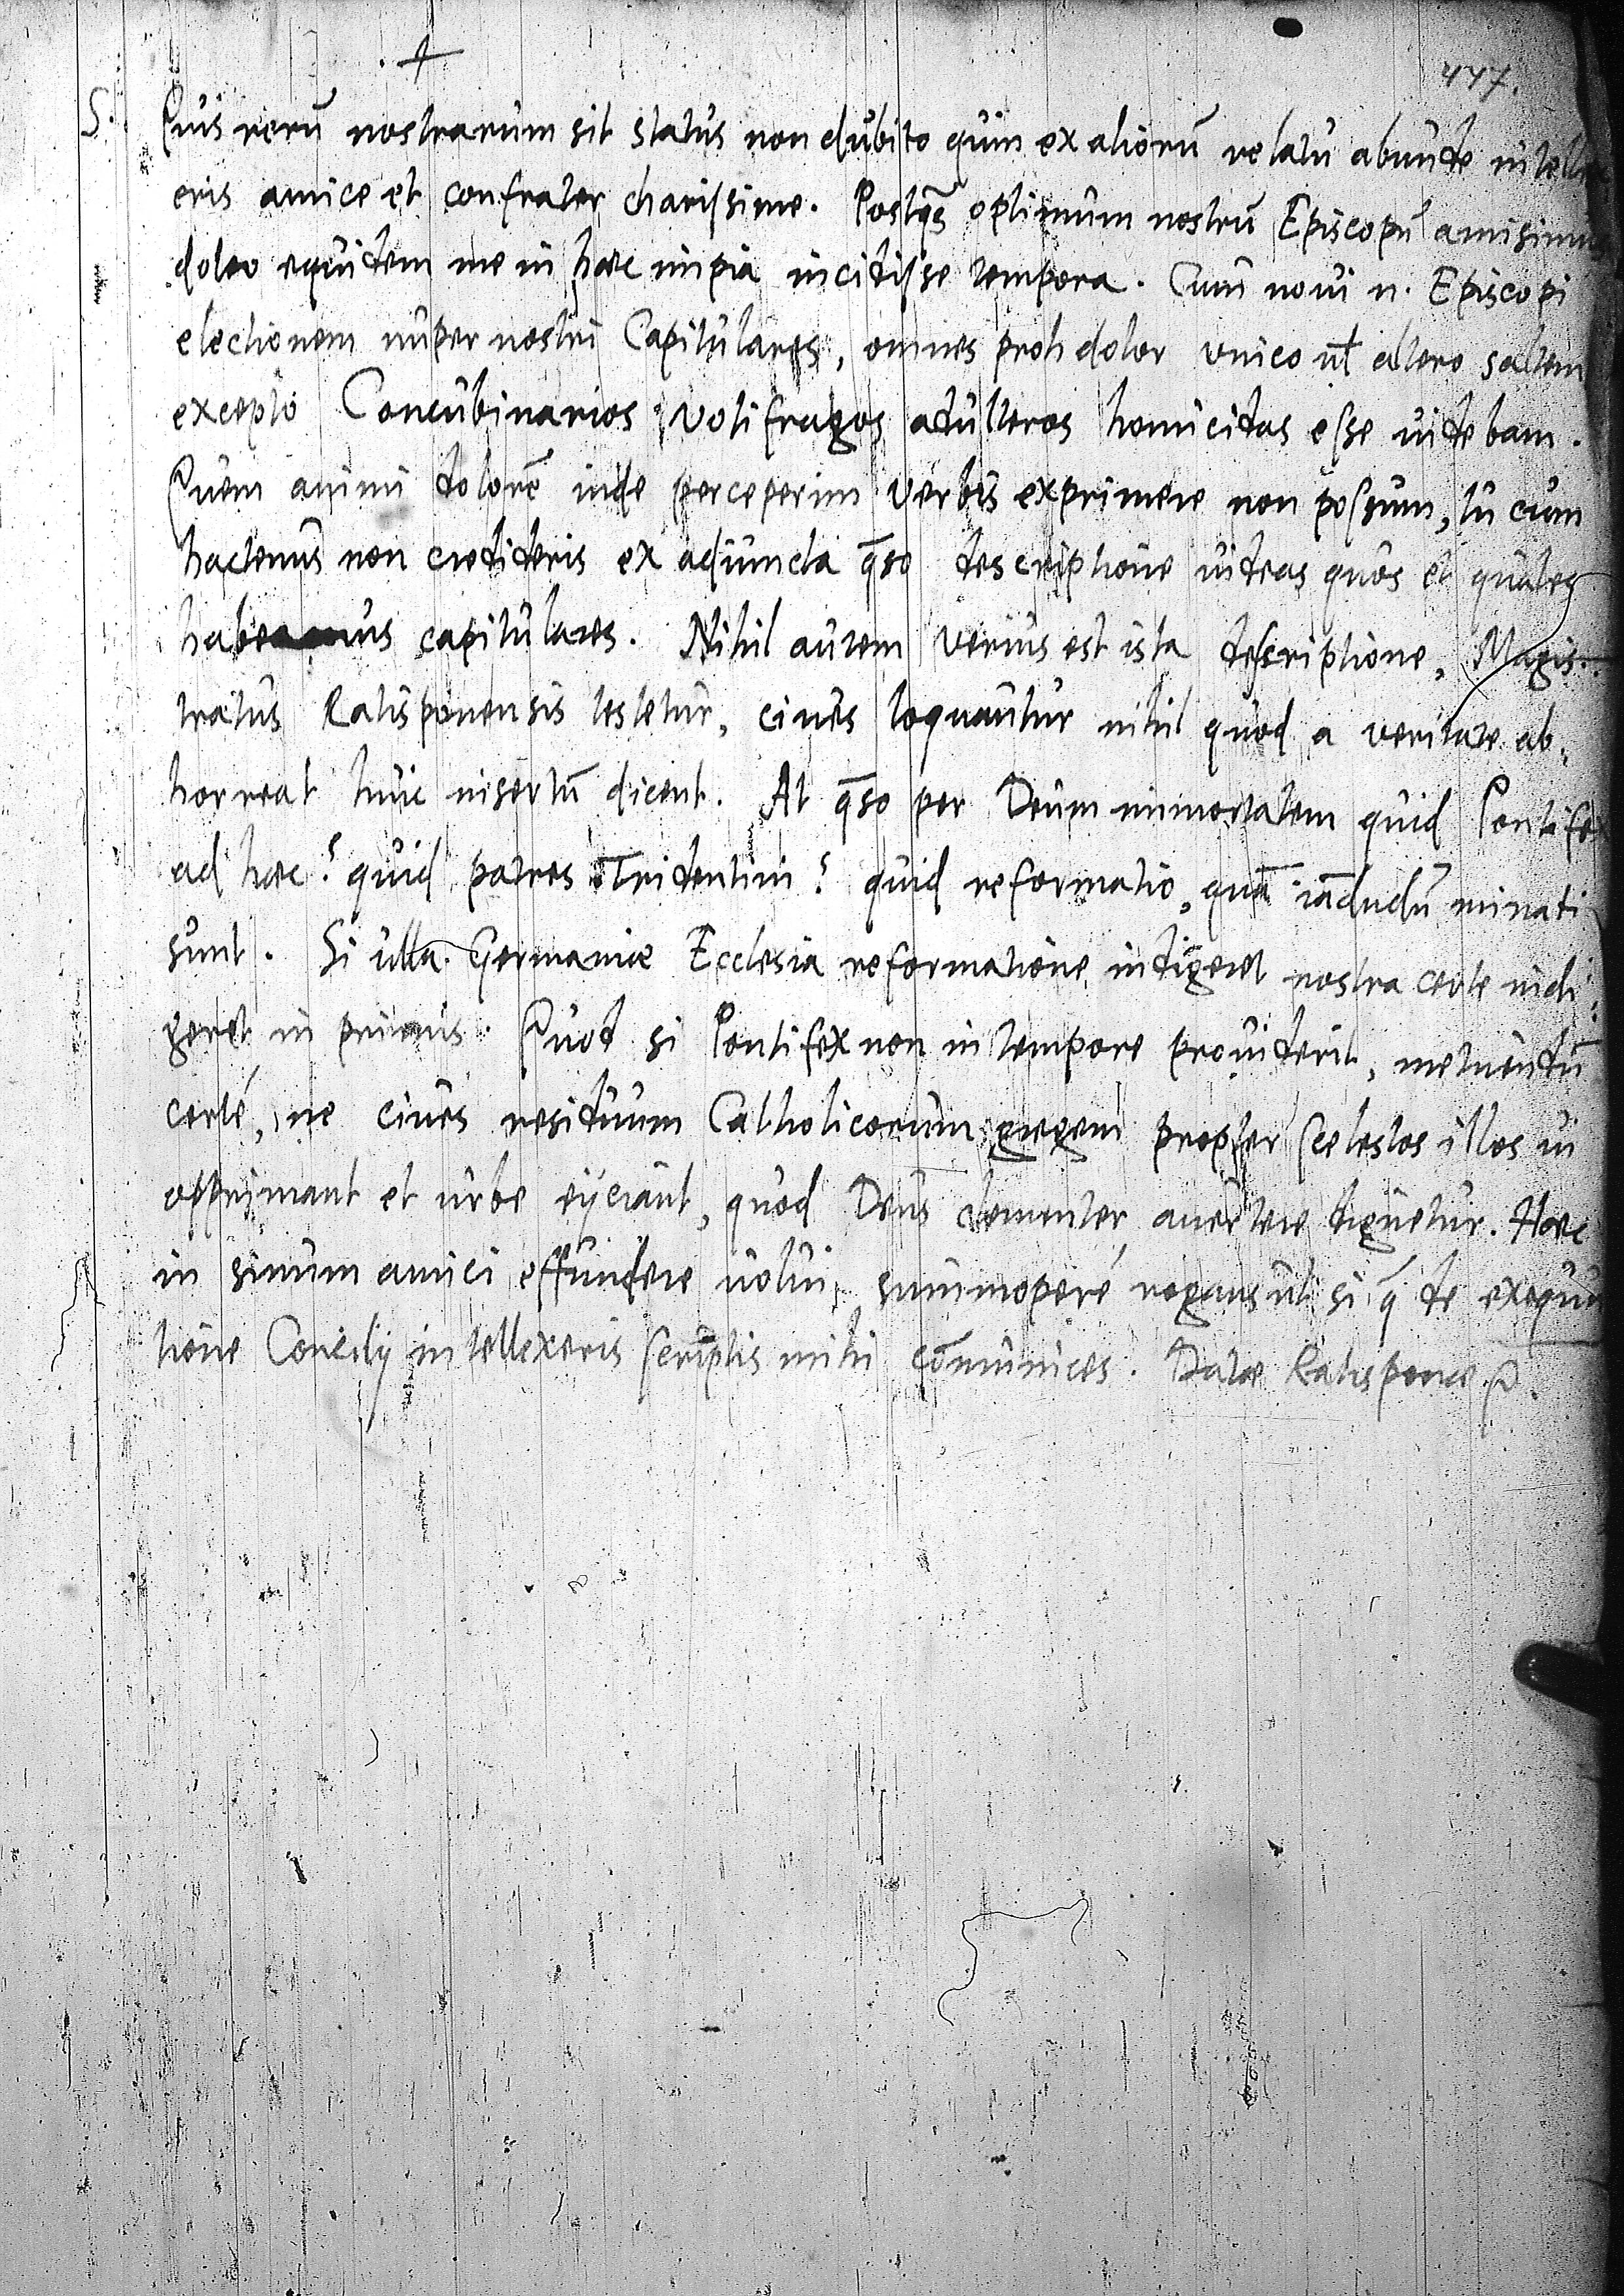 477.
S. Quis rerū nostrarum sit status non dubito quin ex aliorū relatu abunde intellex
eris amice et confrater charissime. Postq̄ optimum nostrū Episcopū amisimus
doleo equidem me in haec impia incidisse tempora. Cum noui n. Episcopi
electionem nuper nostri Capitulares, omnes proh dolor vnico ul̄ altero saltem
excepto Concubinarios Votifragos adulteros homicidas esse uidebam.
Quem animi dolorē inde perceperim verbis exprimere non possum, tu cum
hactenus non credideris ex adiuncta q̄so descriptione uideas quos et quales
habeamus capitulares. Nihil autem verius est ista descriptione, Magis-
tratus Ratisponensis testetur, ciues loquantur nihil quod a veritate ab-
horreat huic insertū dicent. At q̄so per Deum immortalem quid Pontifex
ad haec? quid patres Tridentini? quid reformatio, quā iādudū minati
sunt. Si ulla Germaniae Ecclesia reformatione indigeret nostra certe indi-
geret in primis. Quod si Pontifex non in tempore prouiderit, metuendū
certé, ne ciues residuum Catholicorum gregem propter scelestos illos ui
opprimant et urbe eijciant, quod Deus clementer auertere dignetur. Haec
in sinum amici effundere uolui, summoperé rogans ut si q̄ de exequu
tione Concilij intellexeris scriptis mihi cōmunices. Datae Ratisponae